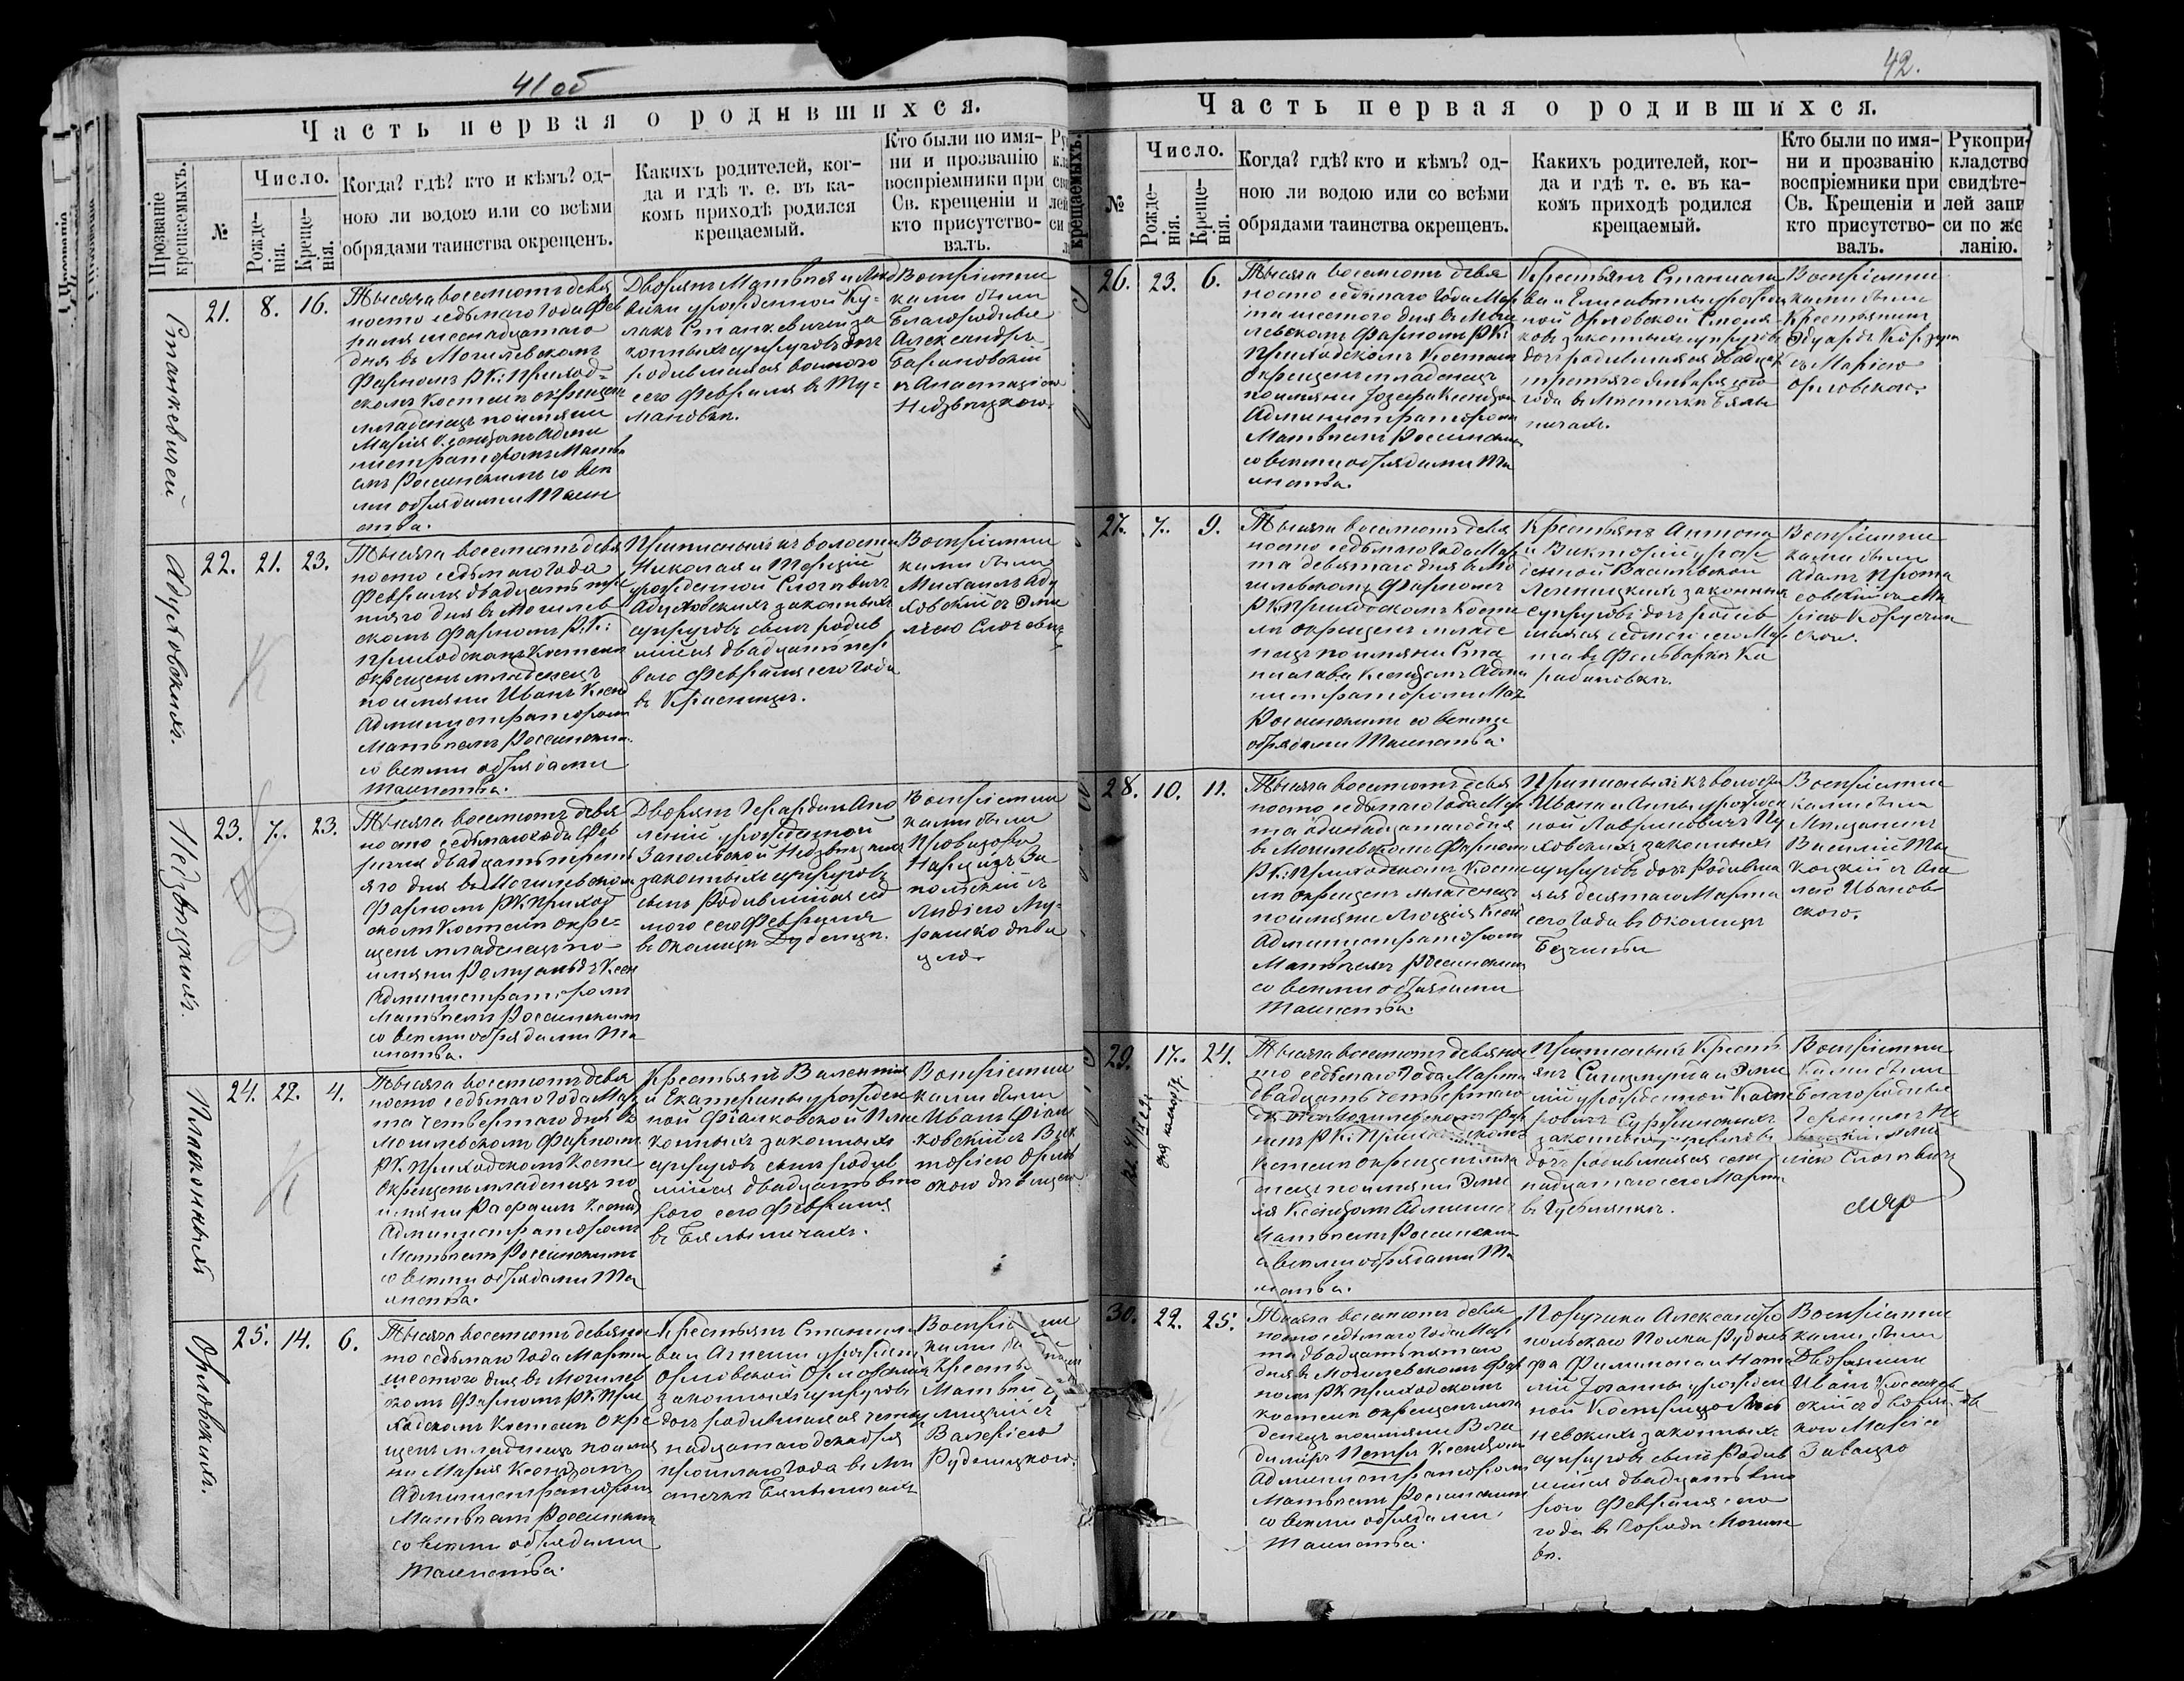 41 об
Часть первая о родившихся.
Прозваніе крещаемыхъ.
№
Число.
Рожде-
нія.
Креще-
нія.
Когда? гдѣ? кто и кѣмъ? од-
ною ли водою или со всѣми
обрядами таинства окрещенъ.
Какихъ родителей, ког-
да и гдѣ т. е. въ ка-
комъ приходѣ родился
крещаемый.
Кто были по имя-
ни и прозванію
воспріемники при
Св. крещеніи и
кто присутство-
валъ.
Станкевичей
21. 8. 16.
Тысяча восемьсотъ девя
носто седьмаго года Фев
раля шеснадцатаго
дня въ Могилевскомъ
Фарномъ Р.К: Приход-
скомъ Костелѣ окрещенъ
младенецъ по имени
Марія Ксендзомъ Адми
нистраторомъ Матвѣ
емъ Россинскимъ со всѣ
ми обрядами Таин
ства.
Дворянъ Матвѣя и
урожденной Ку-
лакъ Станкевичей за
конныхъ супруговъ дочь
родившаяся восьмого
сего Февраля въ Ту-
мановкѣ.
Воспріемни
ками были
Благородные
Александръ
Барановскій
съ Анастасіею
Недзвѣцкою.
Адуховскихъ.
22. 21. 23.
Тысяча восемьсотъ девя
носто седьмаго года
Февраля двадцать тре
тяго дня въ Могилев
скомъ Фарномъ Р.К:
Приходскомъ Костелѣ
окрещенъ младенецъ
по имени Иванъ Ксен
Администраторомъ
Матвѣемъ Россинским
со всѣми обрядами
Таинства.
Приписныхъ къ волости
Николая и Терезіи
урожденной Слотвинъ
Адуховскихъ законныхъ
супруговъ сынъ родив
шійся двадцать пер
ваго Февраля сего года
въ Красницѣ.
Воспріемни
ками были
Михаилъ Аду
ховскій съ Эми
ліею
Недзвѣцкихъ.
23. 7. 23.
Тысяча восемьсотъ девя
носто седьмаго года Фев
раля двадцать треть
яго дня въ Могилевском
Фарномъ Р.К. Приход
скомъ Костелѣ окре-
щенъ младенецъ по
имени Ромуальдъ Ксен
Администраторомъ
Матвѣемъ Россинским
со всѣми обрядами Та
инства.
Дворянъ Герарда и Апо
лоніи урожденной
Запольской Недзвѣцкихъ
законныхъ супруговъ
сынъ Родившійся сед
мого сего Февраля
въ околицѣ Дубенцѣ.
Воспріемни
ками были
Провизоръ
Нарцизъ За
польскій съ
Лидіею Му-
рашко дѣви
цею.
Плаконныхъ
24. 22. 4.
Тысяча восемьсотъ девя
носто седьмаго года Мар
та четвертаго дня въ
Могилевскомъ Фарномъ
Р.К. Приходскомъ Косте
окрещенъ младенецъ по
имени Рафаилъ Ксенд
Администраторомъ
Матвѣемъ Россинскимъ
со всѣми обрядами Та
инства.
Крестьянъ Валентія
и Екатерины урожден
ной Фіалковской Плак
конныхъ законныхъ
супруговъ сынъ родив
шійся двадцать вто
рого сего Февраля
въ Бялыничахъ.
Воспріемни
ками были
Иванъ Фіал
ковскій съ Вик
торіею Орлов
скою дѣвицею.
Орловскихъ.
25. 14. 6.
Тысяча восемьсотъ девяно
сто седьмаго года Марта
шестого дня въ Могилев
скомъ Фарномъ Р.К. При
ходскомъ Костелѣ окре
щенъ младенецъ по име
ни Марія Ксендзомъ
Администраторомъ
Матвѣемъ Россинским
со всѣми обрядами
Таинства.
Крестьянъ Станисла
ва и Агнеши урожден
Орловской Орловскихъ
законныхъ супруговъ
дочь родившаяся четыр
надцатаго декабря
прошлаго года въ Мѣ
стечкѣ Бялыничахъ
Матвѣй
съ
Валеріею
Рудницкою.
42.
Часть первая о родившихся.
крещаемыхъ.
№
Число.
Рожде-
нія.
Креще-
нія.
Когда? гдѣ? кто и кѣмъ? од-
ною ли водою или со всѣми
обрядами таинства окрещенъ.
Какихъ родителей, ког-
да и гдѣ т. е. въ ка-
комъ приходѣ родился
крещаемый.
Кто были по имя-
ни и прозванію
воспріемники при
Св. Крещеніи и
кто присутство-
валъ.
Рукопри-
кладство
свидѣте-
лей запи
си по же
ланію.
26. 23. 6.
Тысяча восемьсотъ девя
носто седьмаго года Мар
та шестого дня въ Моги
левскомъ Фарномъ Р.К:
Приходскомъ Костелѣ
окрещенъ младенецъ
по имени Іозефа Ксендзом
Администраторомъ
Матвѣемъ Россинским
со всѣми обрядами Та
инства.
Крестьянъ Станисла
ва и Елисаветы урожден
ной Орловской
законныхъ супруговъ
дочь родившаяся двадцать
третьяго Января сего
года въ Мѣстечкѣ Бялы
ничахъ.
Воспріемни
ками были
Крестьянинъ
Эдуардъ
съ Маріею
Орловскою.
27. 7. 9.
Тысяча восемьсотъ девя
носто седьмаго года Мар
та девятаго дня въ Мо
гилевскомъ Фарномъ
Р.К. Приходскомъ Косте
лѣ окрещенъ младе
нецъ по имени Ста
нислава Ксендзомъ Адми
нистраторомъ Мат.
Россинскимъ со всѣми
обрядами Таинства.
Крестьянъ Антона
и Викторіи урож
денной Василевской
законныхъ
супруговъ дочь родив
шаяся седмого сего Мар
та въ Фольваркѣ Ка
рабановкѣ.
Воспріемни
ками были
Адамъ Прота
совскій съ Ма
ріею
28. 10. 11.
Тысяча восемьсотъ девя
носто седьмаго года Мар
та одинадцатаго дня
въ Могилевскомъ Фарном
Р.К: Приходскомъ Косте
лѣ окрещенъ младенец
по имени Люція Ксен
Администраторомъ
Матвѣемъ Россинским
со всѣми обрядами
Таинства.
Приписныхъ къ волости
Ивана и Анны урожден
ной Лавриновичъ
законныхъ
супруговъ дочь Родивша
яся десятаго Марта
сего года въ околицѣ
Воспріемни
ками были
Мѣщанинъ
Василій
съ
Иванов
скою.
29. 17. 24.
Тысяча восемьсотъ девяно
сто седьмаго года Марта
двадцать четвертаго
дня въ Могилевскомъ Фар
номъ Р.К: Приходскомъ
Костелѣ окрещенъ мла
денецъ по имени Эми
лія Ксендзомъ Админис
Матвѣемъ Россинским
со всѣми обрядами Та
инства.
Приписныхъ Кресть
янъ Сигизмунда и Эми
ліи урожденной
законныхъ супруговъ
дочь родившаяся сем
надцатаго сего Марта
въ
Воспріемни
ками были
Благородные
Геронимъ
съ Эми
ліею
30. 22. 25.
Тысяча восемьсотъ девя
носто седьмаго года Мар
та двадцать пятаго
дня въ Могилевскомъ Фар
номъ Р.К. Приходскомъ
костелѣ окрещенъ мла
денецъ по имени Вла
диміръ Петръ Ксендзом
Администраторомъ
Матвѣемъ Россинским
со всѣми обрядами
Таинства.
Поручика Александро
польскаго Полка Рудоль
фа Филимона и Ната
ліи Іоанны урожден
ной
законныхъ
супруговъ сынъ Родив
шійся двадцать вто
рого Февраля сего
года въ Городѣ Могиле
вѣ.
Воспріемни
ками были
Дворянинъ
Иванъ
скій съ дворян
кою Маріею
Завадзко